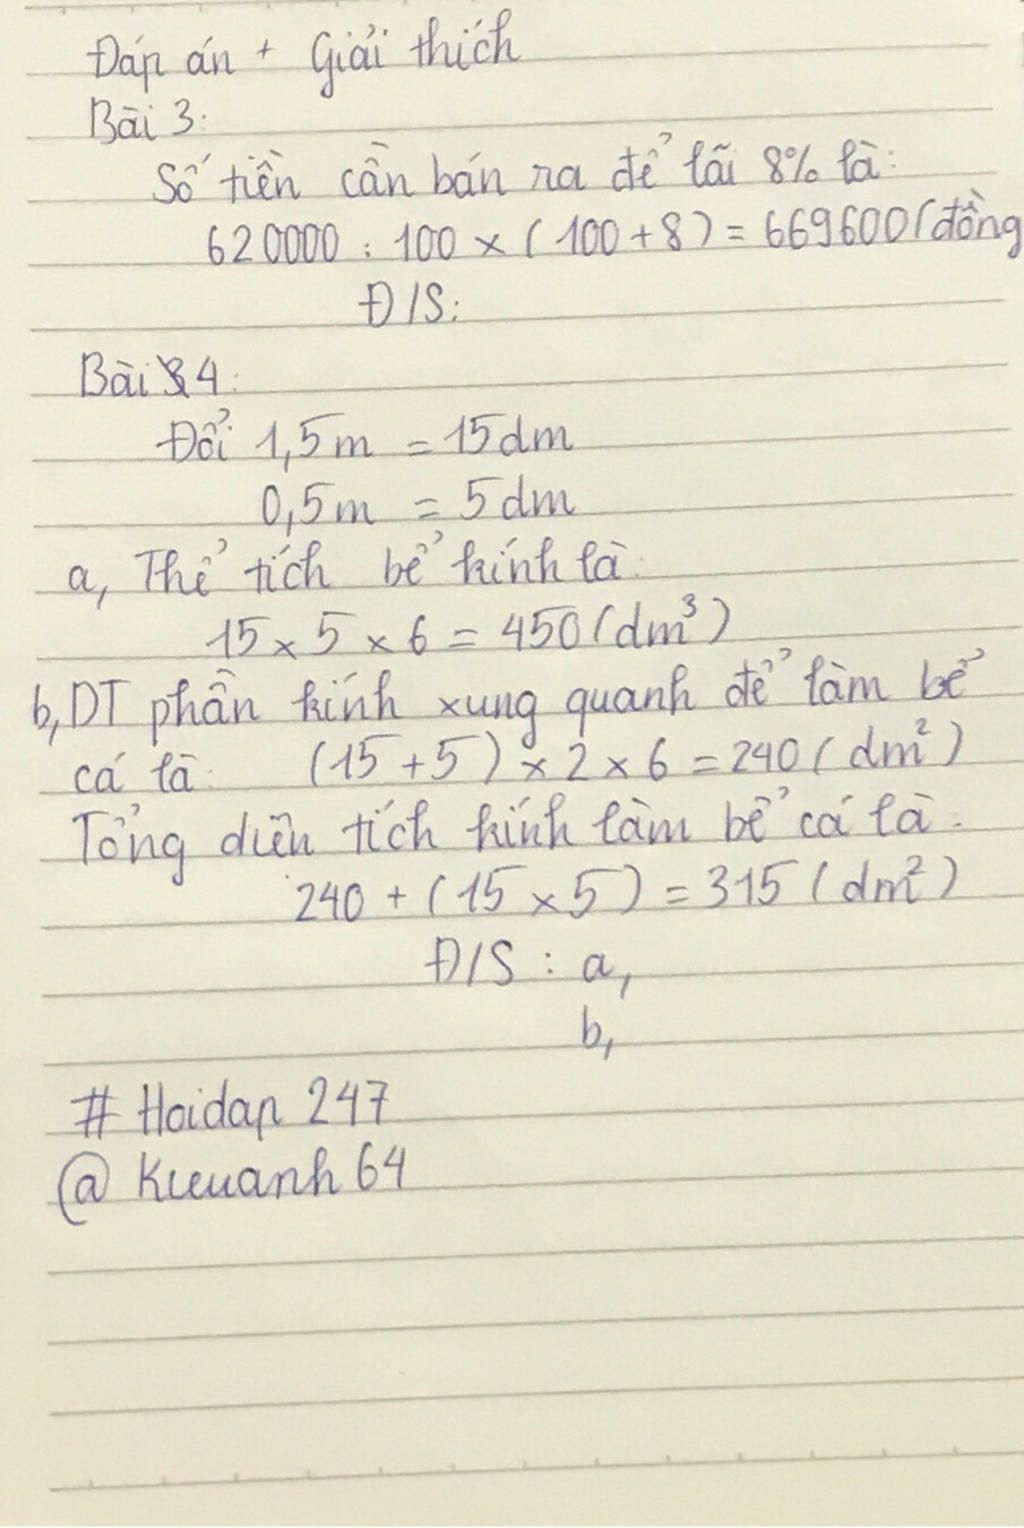 Đáp án + Giải thích
Bài 3:
Số tiền cần bán ra để lãi 8% là:
620000 : 100 × (100+8) = 669600(đồng
Đ/S:
Bài 4:
Đổi 1,5m = 15dm
0,5m = 5dm
a, Thể tích bể kính là:
15 × 5 × 6 = 450(dm³)
b, DT phần kính xung quanh để làm bể
cá là: (15+5) × 2 × 6 = 240(dm²)
Tổng diện tích kính làm bể cá là:
240 + (15 × 5) = 315(dm²)
Đ/S : a,
b,
# Hoidap 247
@ Kieuanh64